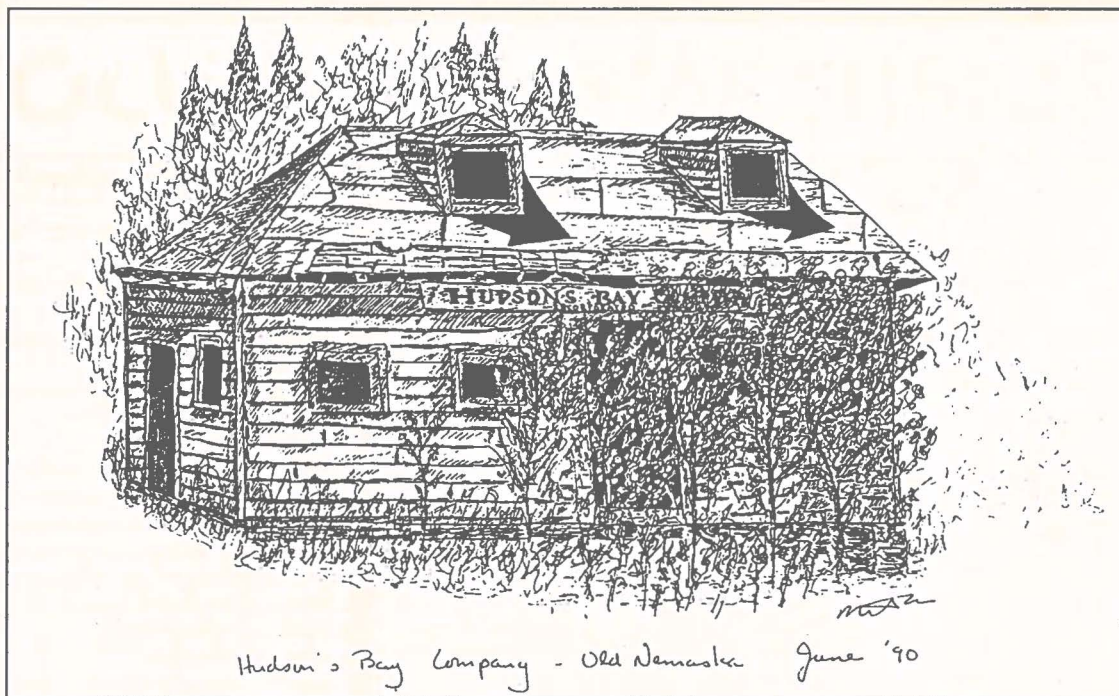 HUDSON'S BAY
Hudson's Bay Company - Old Nemaska June '90